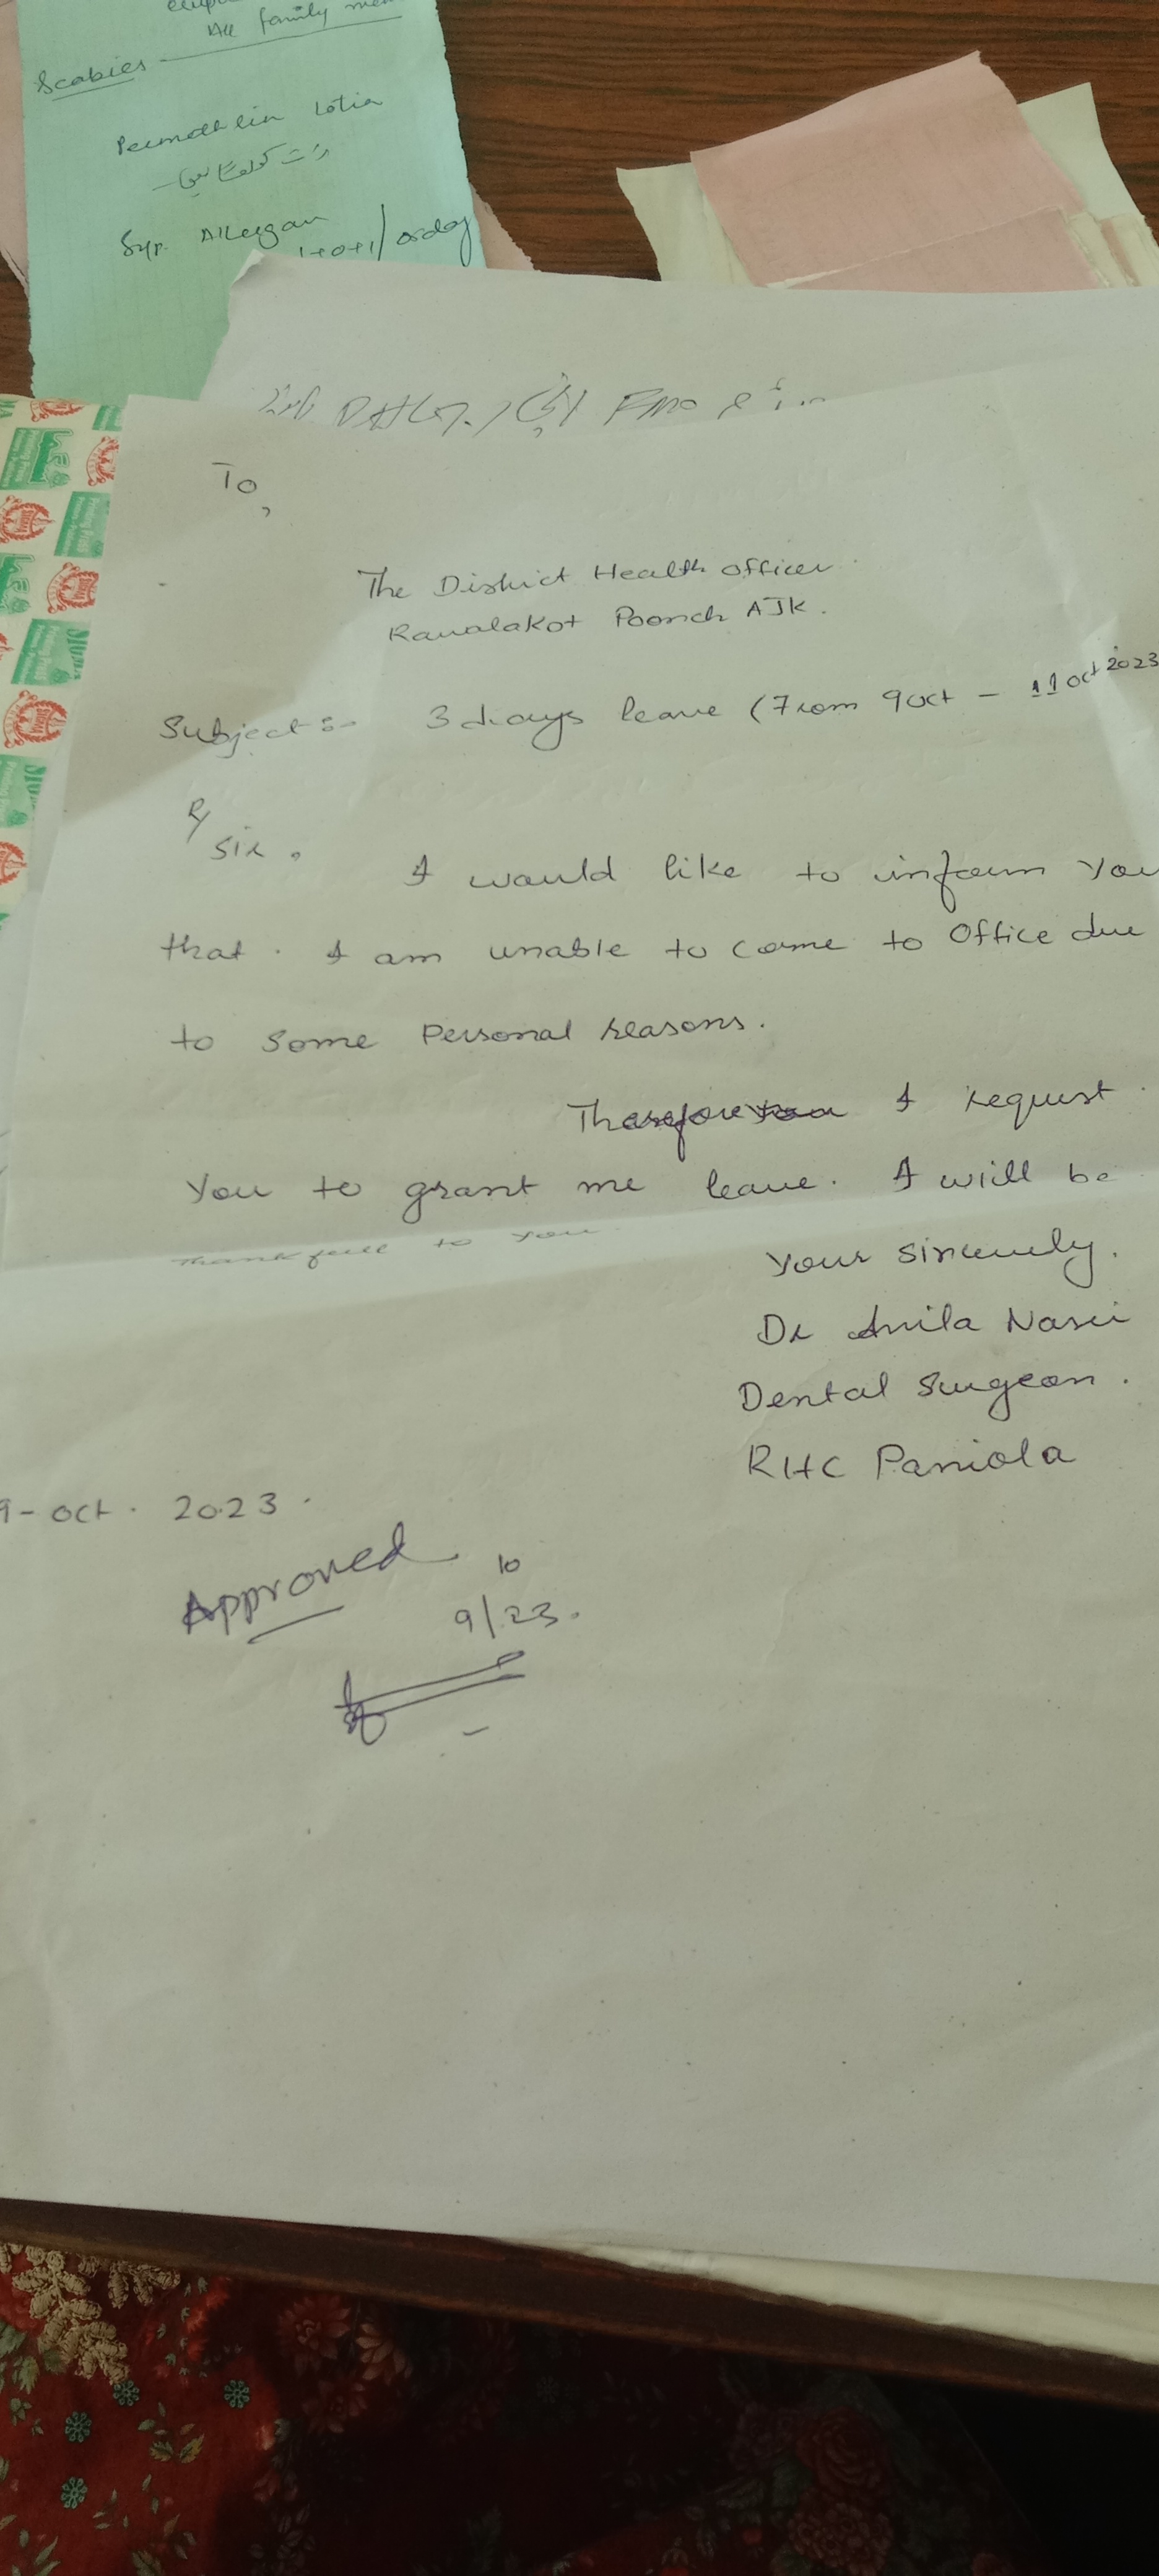 All family mem
Scabies
Permethlin Lotion
Syp. Allergan
1+0+1/
To,
The District Health officer
Rawalakot Poonch AJK.
Subject:- 3 days leave (From 9 oct - 11 oct 2023
R/
Sir.
I would like to inform you
that. I am unable to come to Office due
to some Personal reasons.
Therefore I request
You to grant me leave. I will be
Thankfull to you
Your sincerely.
Dr Anila Nasir
Dental Surgeon.
RHC Paniola
9-oct. 2023.
Approved
10
9/23.